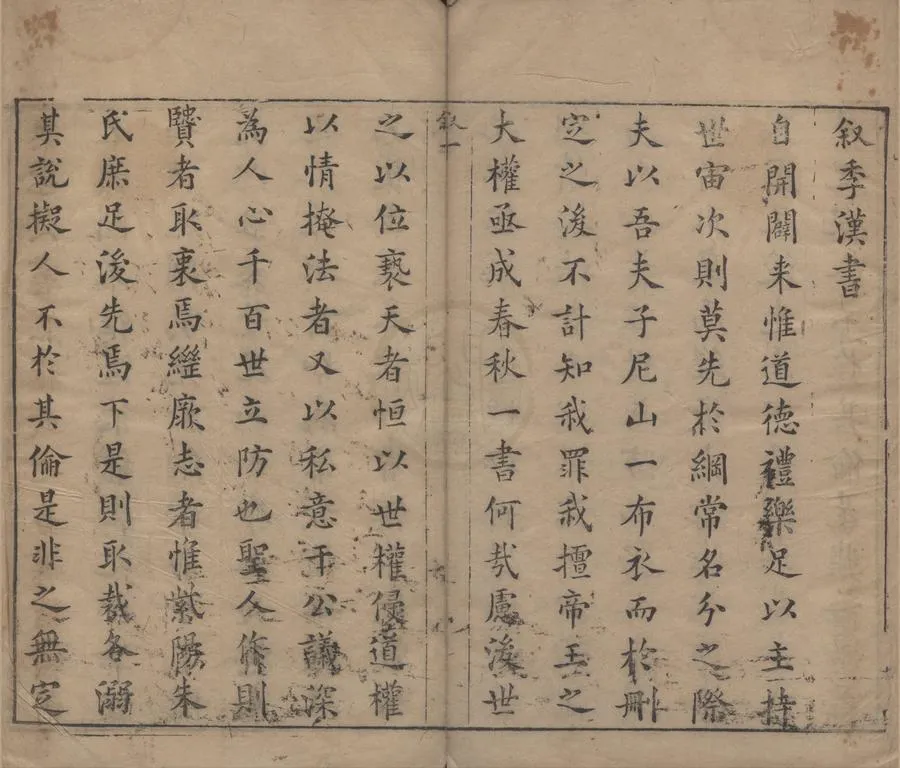 叙季漢書
自開闢来惟道德禮樂足以主持
世宙次則莫先於綱常名分之際
夫以吾夫子尼山一布衣而於刪
定之後不計知我罪我擅帝王之
大權亟成春秋一書何㢤慮後世
叙一
之以位褻天者恒以世權侵道權
以情掩法者又以私意干公議深
為人心千百世立防也聖人作則
賢者取裏焉繼厥志者惟紫陽朱
氏庶足後先焉下是則取裁各溺
其說擬人不於其倫是非之無定